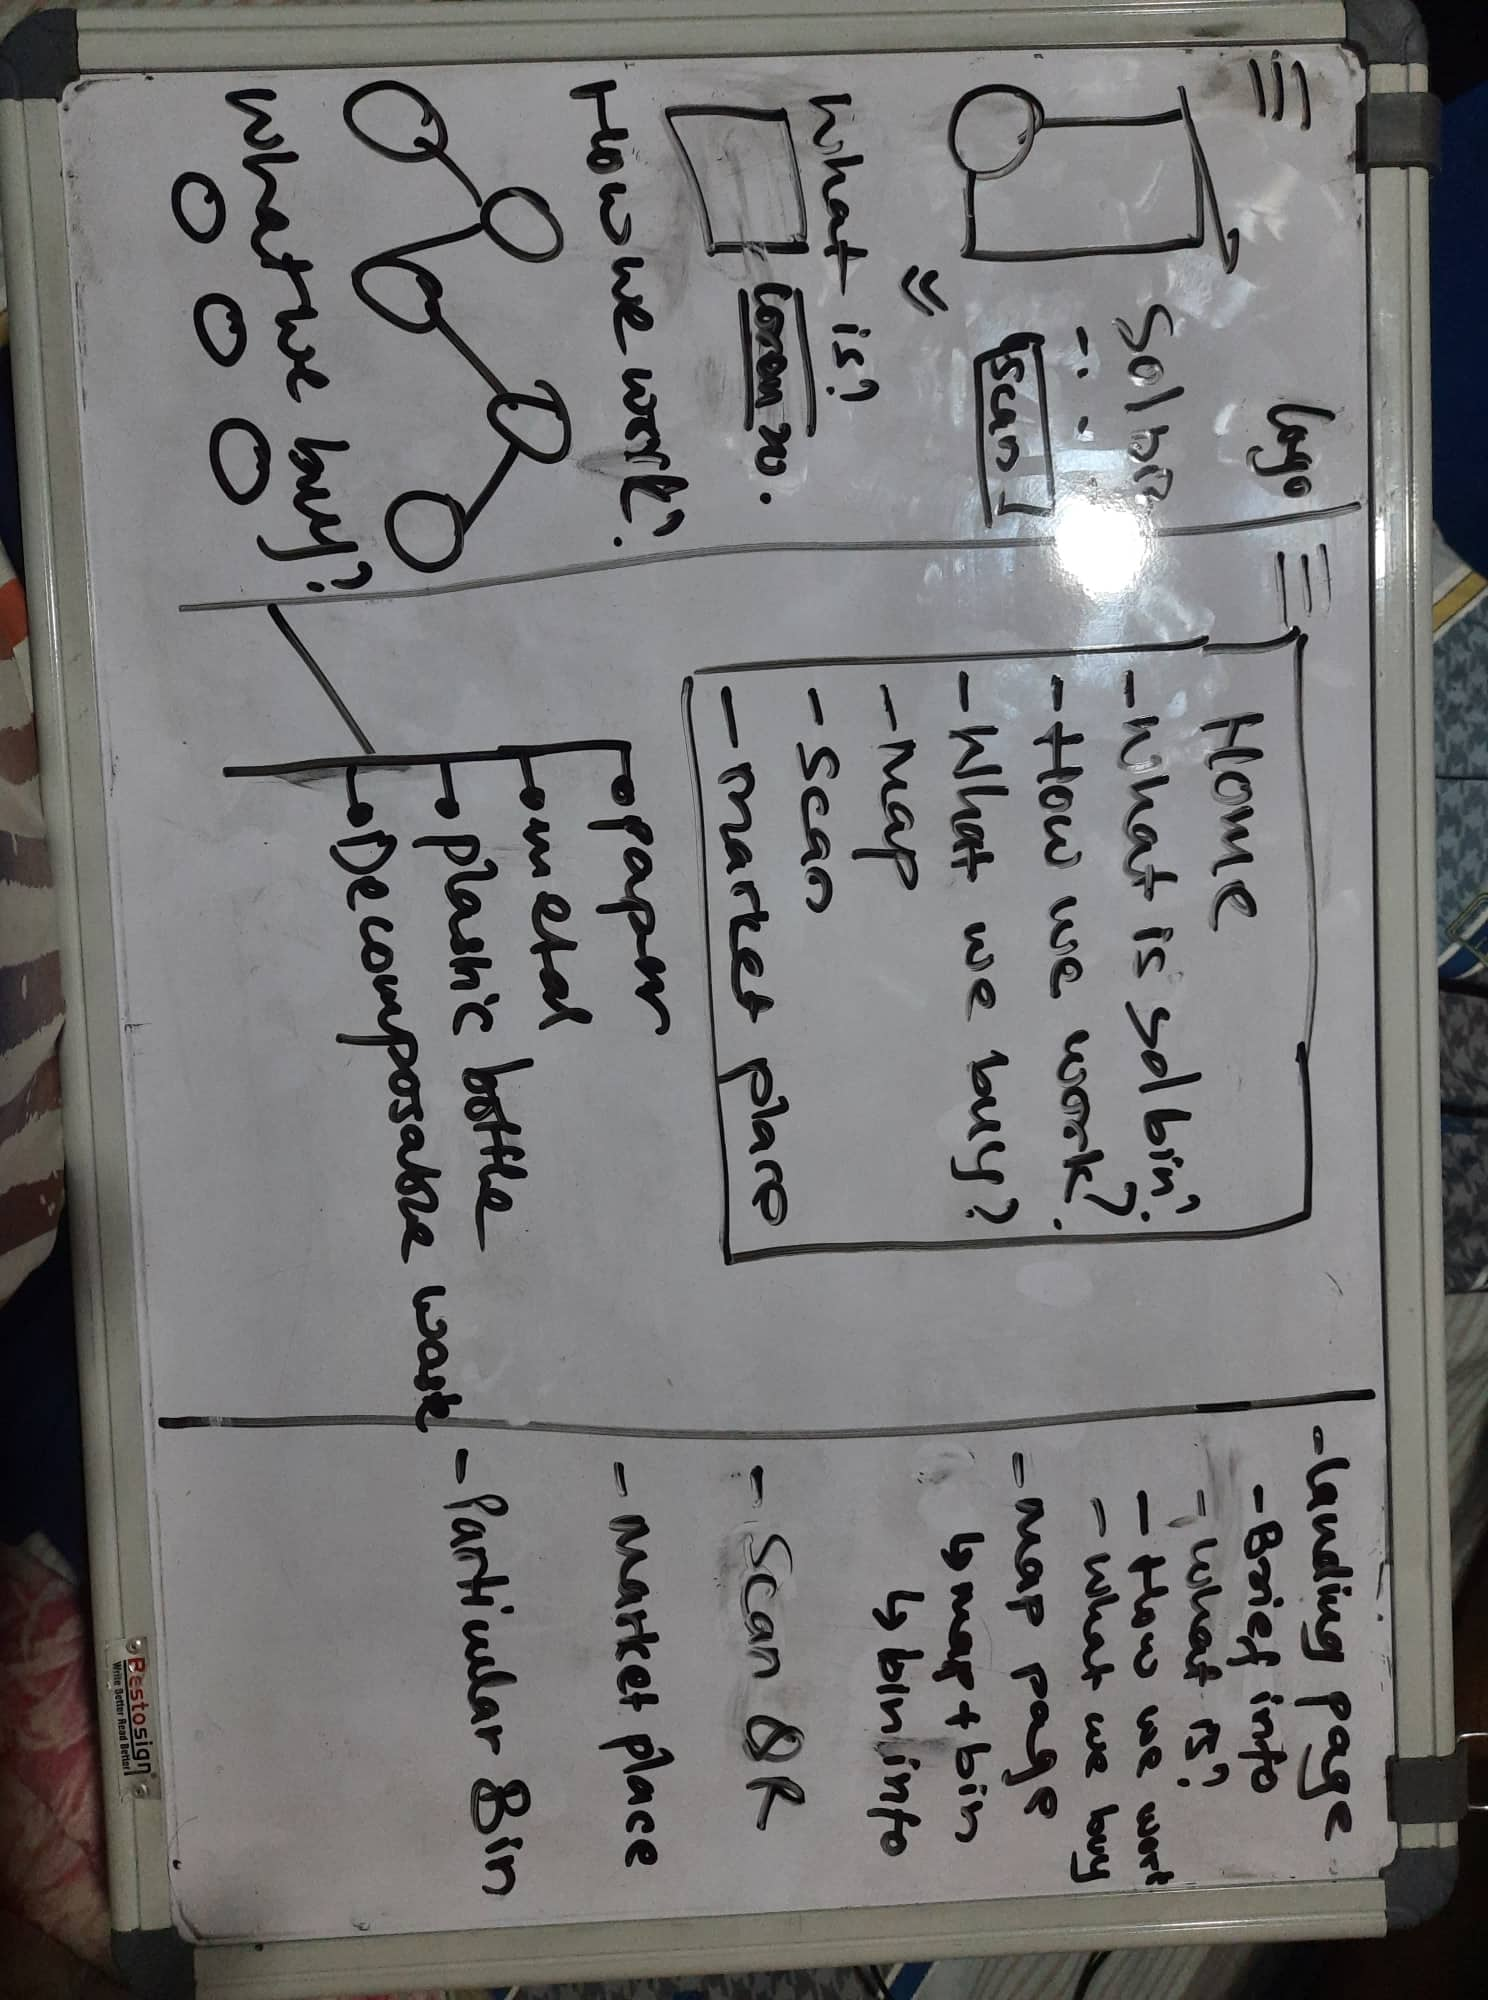 Logo
Solbin
Scan
What is?
How we work?
What we buy?
Home
- What is solbin?
- How we work?
- What we buy?
- Map
- Scan
- market place
paper
metal
plastic bottle
Decomposable waste
- Landing page
- Brief info
- What is?
- How we work
- What we buy
- map page
↳ map + bin
↳ bin info
- Scan QR
- Market place
- Particular Bin
Bestosign
Write Better Read Better!